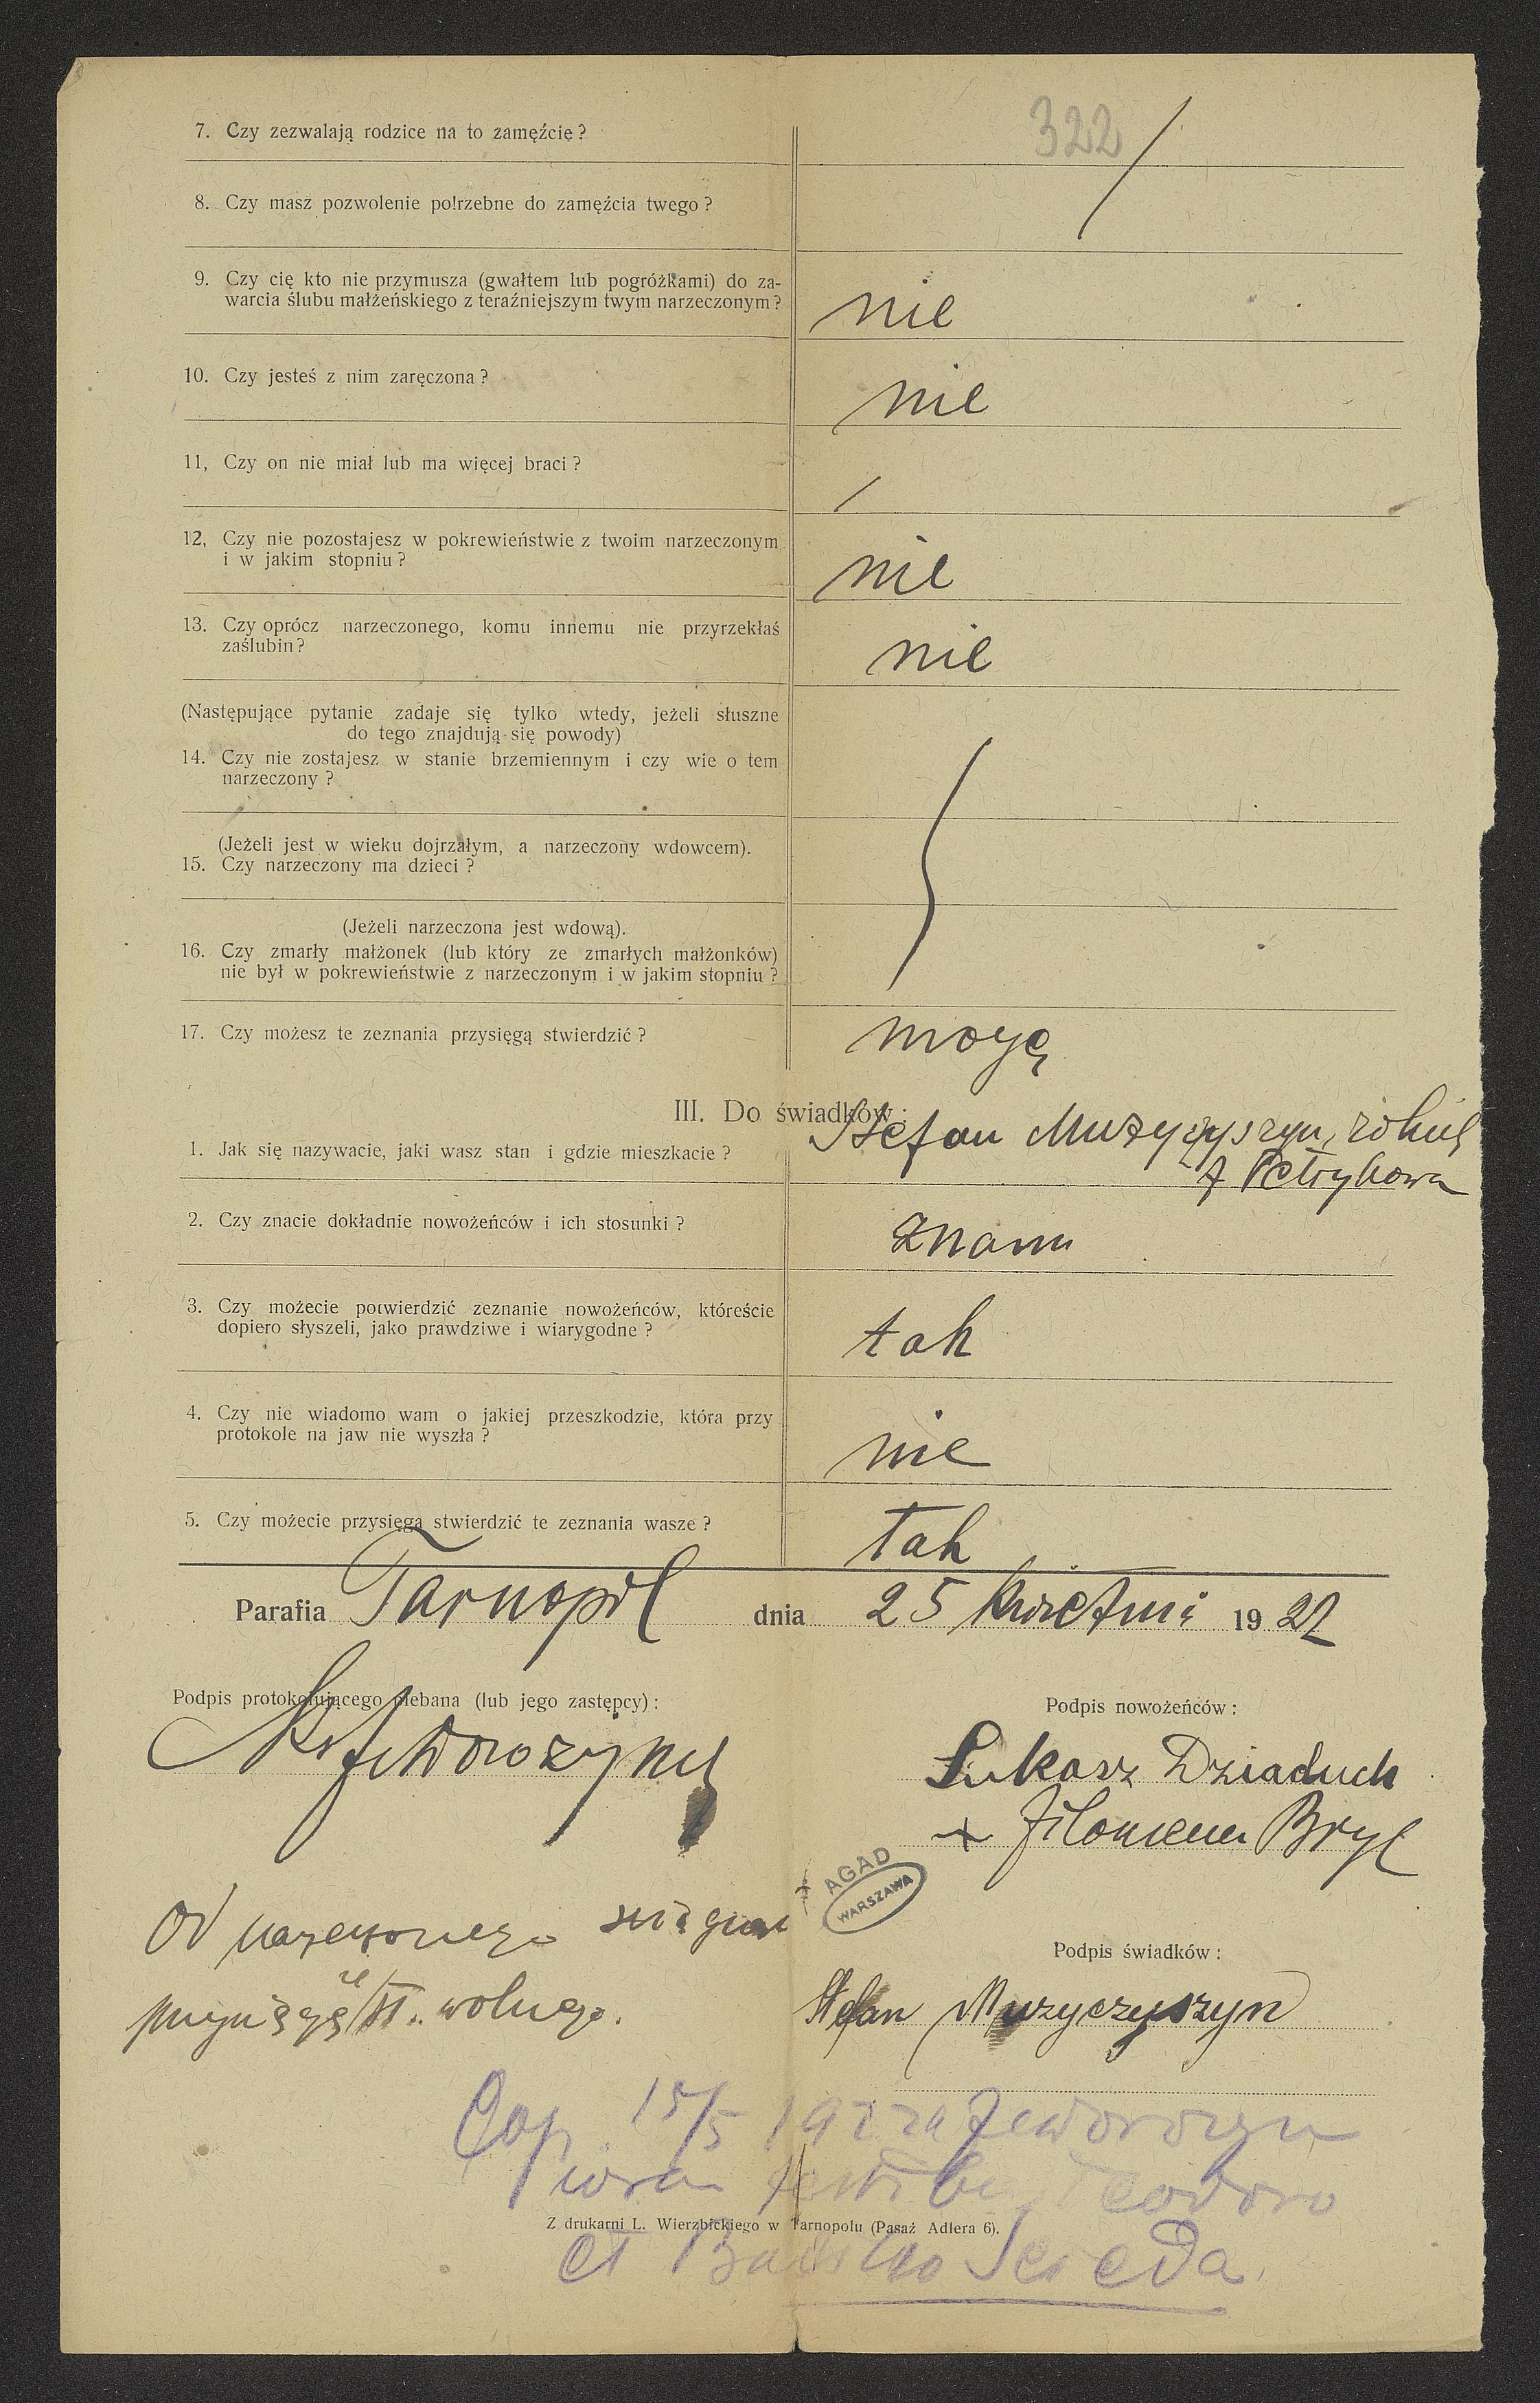 322
7. Czy zezwalają rodzice na to zamęźcie?
8. Czy masz pozwolenie potrzebne do zamęźcia twego?
9. Czy cię kto nie przymusza (gwałtem lub pogróżkami) do za-
warcia ślubu małżeńskiego z teraźniejszym twym narzeczonym?
nie
10. Czy jesteś z nim zaręczona?
nie
11, Czy on nie miał lub ma więcej braci?
12, Czy nie pozostajesz w pokrewieństwie z twoim narzeczonym
i w jakim stopniu?
nie
13. Czy oprócz narzeczonego, komu innemu nie przyrzekłaś
zaślubin?
nie
(Następujące pytanie zadaje się tylko wtedy, jeżeli słuszne
do tego znajdują się powody)
14. Czy nie zostajesz w stanie brzemiennym i czy wie o tem
narzeczony?
(Jeżeli jest w wieku dojrzałym, a narzeczony wdowcem).
15. Czy narzeczony ma dzieci?
(Jeżeli narzeczona jest wdową).
16. Czy zmarły małżonek (lub który ze zmarłych małżonków)
nie był w pokrewieństwie z narzeczonym i w jakim stopniu?
17. Czy możesz te zeznania przysięgą stwierdzić?
mogę
III. Do świadków:
1. Jak się nazywacie, jaki wasz stan i gdzie mieszkacie?
Stefan Muzyczyszyn, rolnik
z Petrykowa
2. Czy znacie dokładnie nowożeńców i ich stosunki?
znam
3. Czy możecie potwierdzić zeznanie nowożeńców, któreście
dopiero słyszeli, jako prawdziwe i wiarygodne?
tak
4. Czy nie wiadomo wam o jakiej przeszkodzie, która przy
protokole na jaw nie wyszła?
nie
5. Czy możecie przysięgą stwierdzić te zeznania wasze?
tak
Parafia Tarnopil dnia 25 kwietnia 1922
Podpis protokołującego plebana (lub jego zastępcy):
Podpis nowożeńców:
Łukasz Dziaduch
+ Filomena Bryl
AGAD
WARSZAWA
Od narzeczonego
przysięgę że st. wolnego.
Podpis świadków:
Stefan Muzyczyszyn
Cop. 15/5 1922
Teodoro
Z drukarni L. Wierzbickiego w Tarnopolu (Pasaż Adlera 6).
et